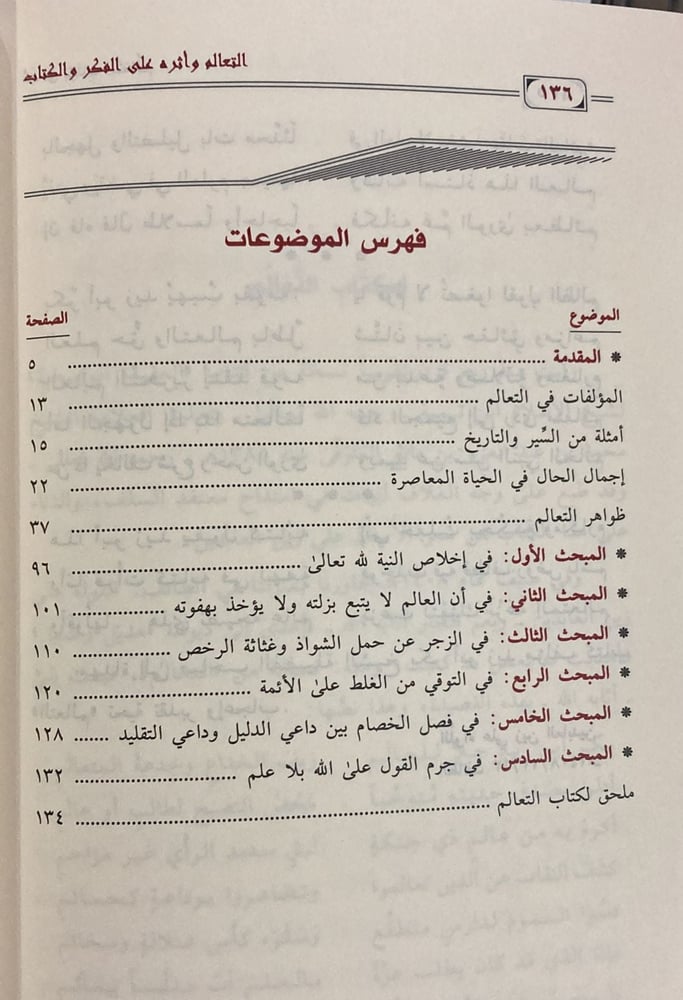 التعالم وأثره على الفكر والكتاب
١٣٦
فهرس الموضوعات
الموضوع الصفحة
* المقدمة ........................ ٥
المؤلفات في التعالم ........................ ١٣
أمثلة من السِّير والتاريخ ........................ ١٥
إجمال الحال في الحياة المعاصرة ........................ ٢٢
ظواهر التعالم ........................ ٣٧
* المبحث الأول: في إخلاص النية لله تعالىٰ ........................ ٩٦
* المبحث الثاني: في أن العالم لا يتبع بزلته ولا يؤخذ بهفوته ............ ١٠١
* المبحث الثالث: في الزجر عن حمل الشواذ وغثاثة الرخص ............ ١١٠
* المبحث الرابع: في التوقي من الغلط علىٰ الأئمة ........................ ١٢٠
* المبحث الخامس: في فصل الخصام بين داعي الدليل وداعي التقليد ....... ١٢٨
* المبحث السادس: في جرم القول علىٰ الله بلا علم ........................ ١٣٢
ملحق لكتاب التعالم ........................ ١٣٤